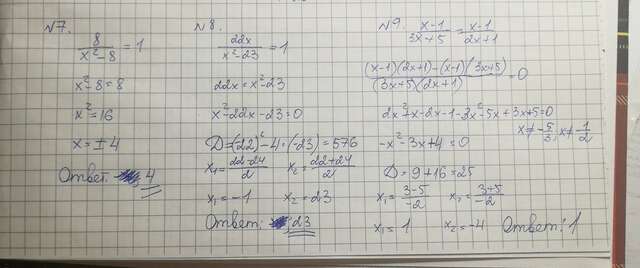 №7.
8/(x²-8) = 1
x²-8=8
x²=16
x=±4
Ответ: 4
№8.
22x/(x²-23) = 1
22x=x²-23
x²-22x-23=0
D=(-22)²-4·(-23)=576
x₁=(22-24)/2 x₂=(22+24)/2
x₁=-1 x₂=23
Ответ: 23
№9.
(x-1)/(3x+5) = (x-1)/(2x+1)
((x-1)(2x+1)-(x-1)(3x+5))/((3x+5)(2x+1)) = 0
2x²+x-2x-1-3x²-5x+3x+5=0
x≠-5/3, x≠-1/2
-x²-3x+4=0
D=9+16=25
x₁=(3-5)/-2 x₂=(3+5)/-2
x₁=1 x₂=-4 Ответ: 1